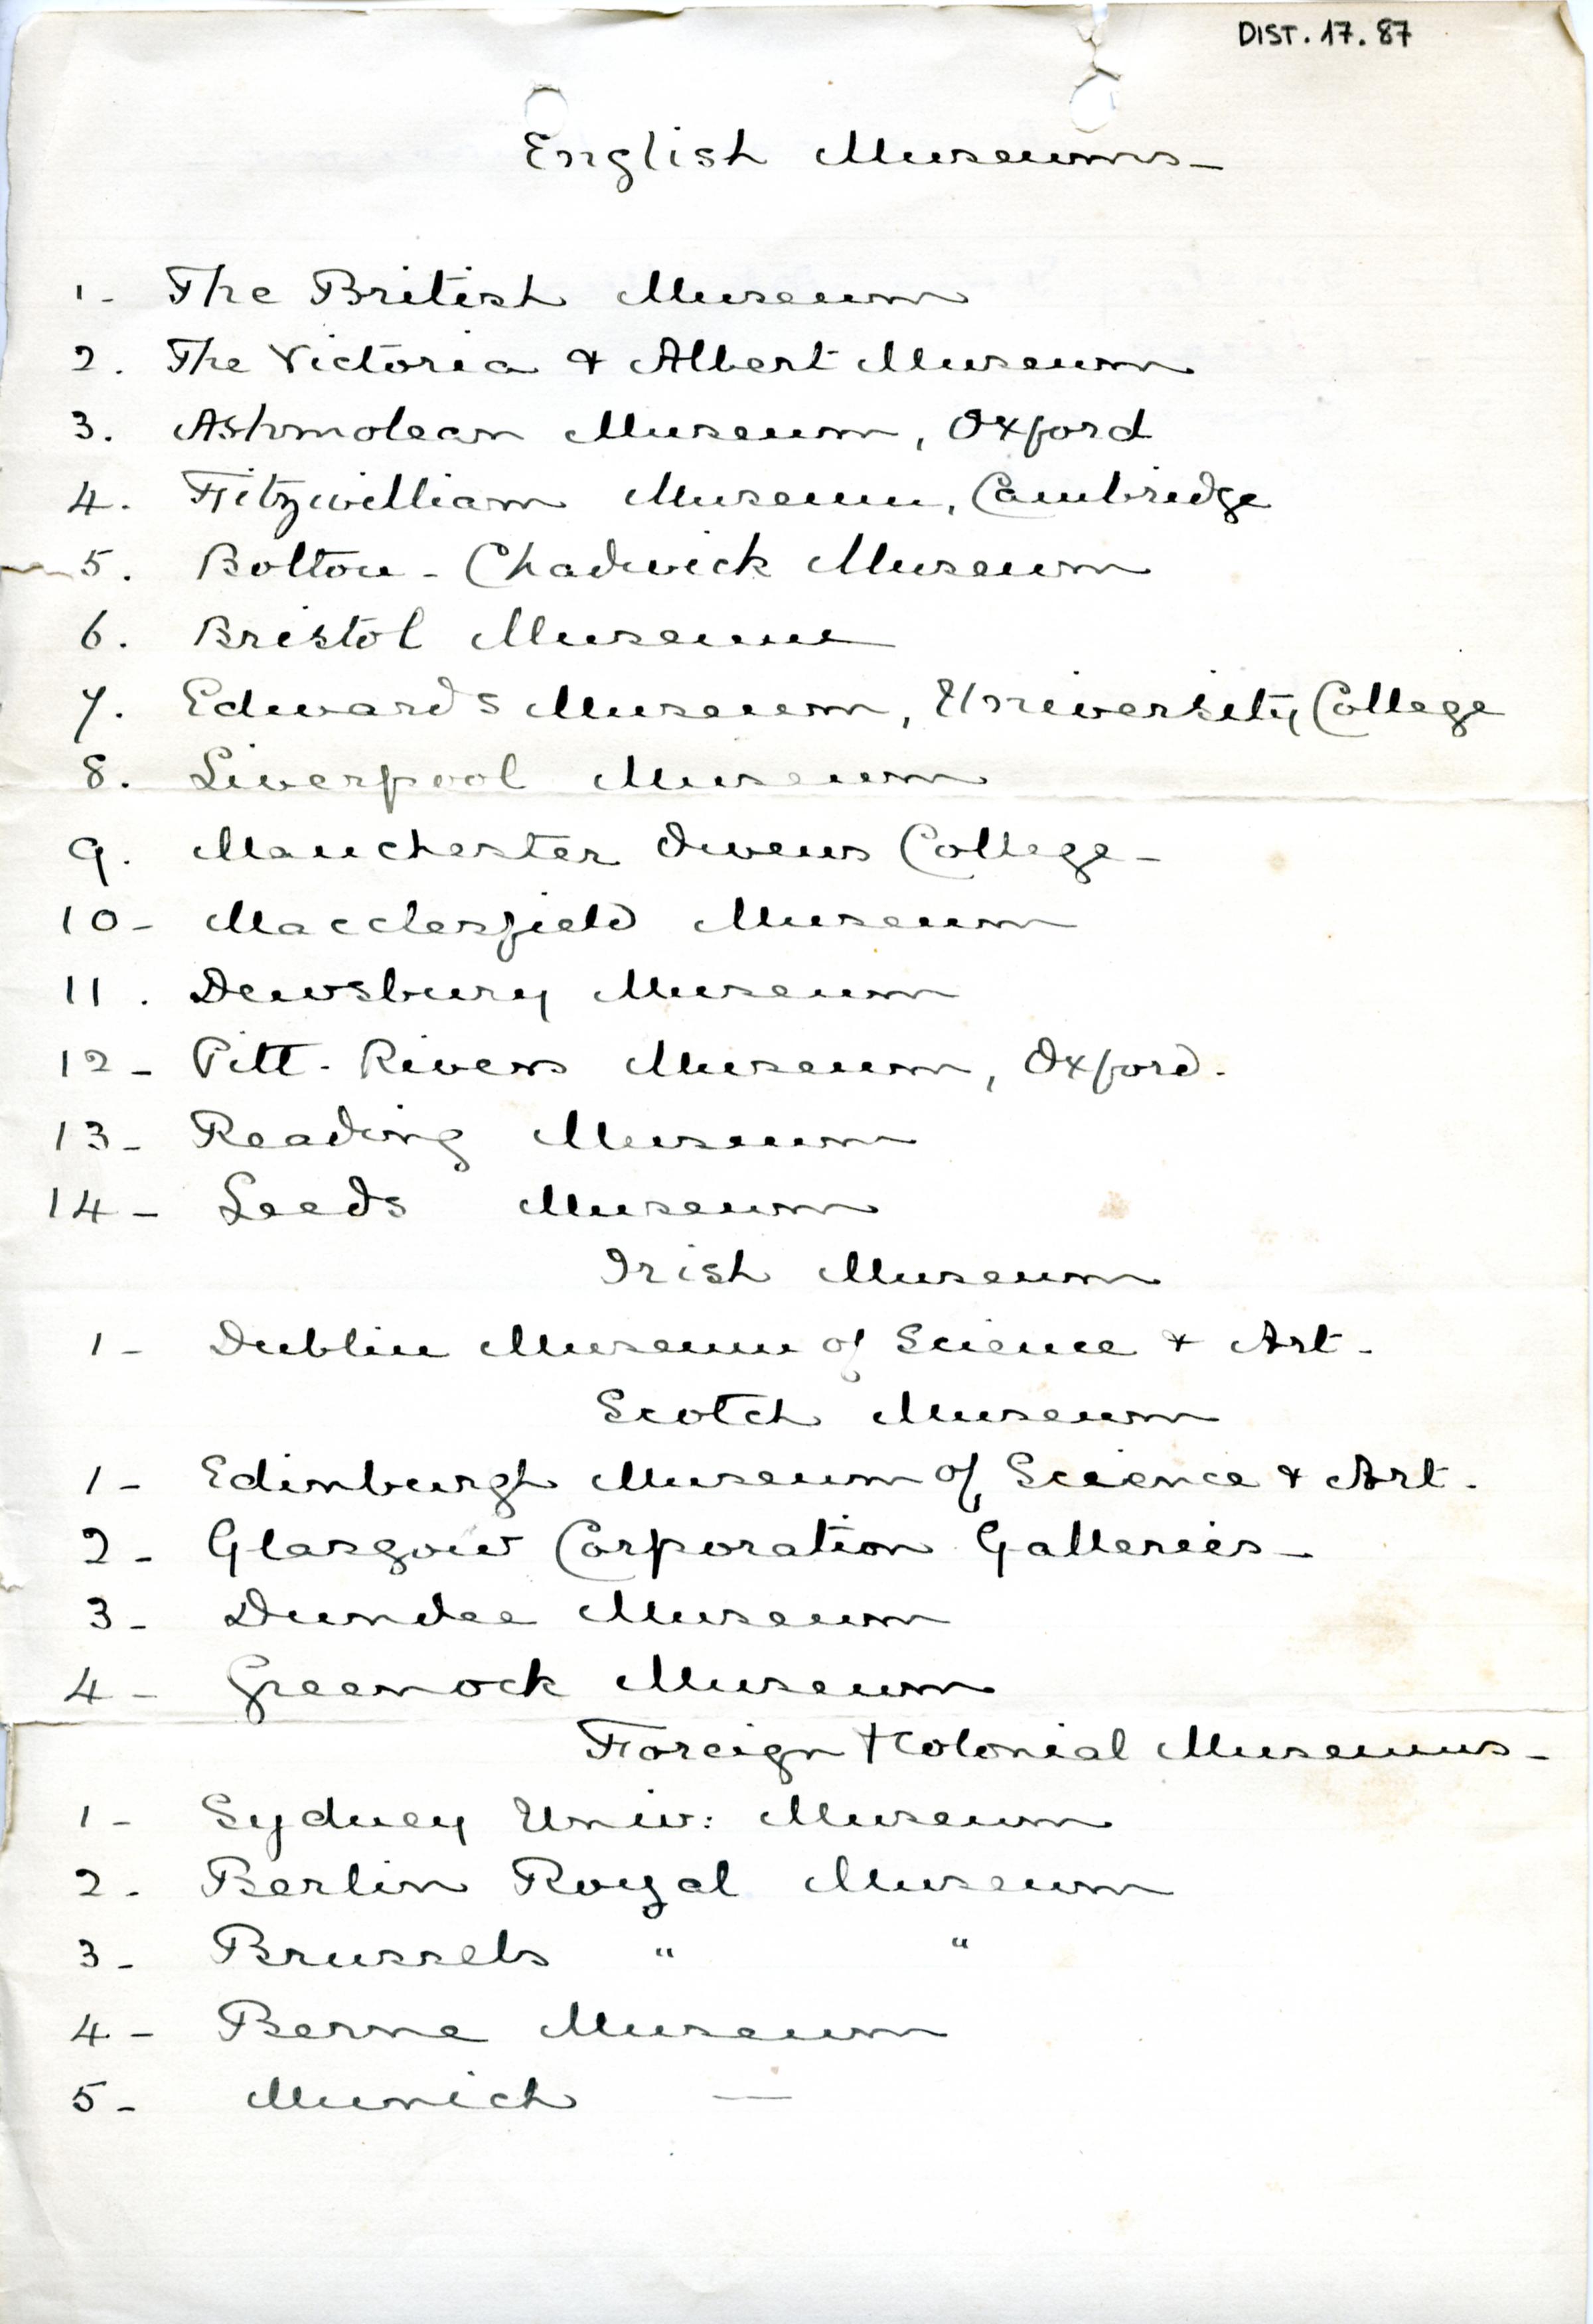 DIST. 17. 87
English Museums -
1 - The British Museum
2. The Victoria & Albert Museum
3. Ashmolean Museum, Oxford
4. Fitzwilliam Museum, Cambridge
5. Bolton - Chadwick Museum
6. Bristol Museum
7. Edwards Museum, University College
8. Liverpool Museum
9. Manchester Owens College -
10 - Macclesfield Museum
11. Dewsbury Museum
12 - Pitt-Rivers Museum, Oxford.
13 - Reading Museum
14 - Leeds Museum
Irish Museum
1 - Dublin Museum of Science & Art -
Scotch Museum
1 - Edinburgh Museum of Science & Art.
2 - Glasgow Corporation Galleries -
3 - Dundee Museum
4 - Greenock Museum
Foreign + Colonial Museums -
1 - Sydney Univ: Museum
2. Berlin Royal Museum
3 - Brussels " "
4 - Berne Museum
5 - Munich —